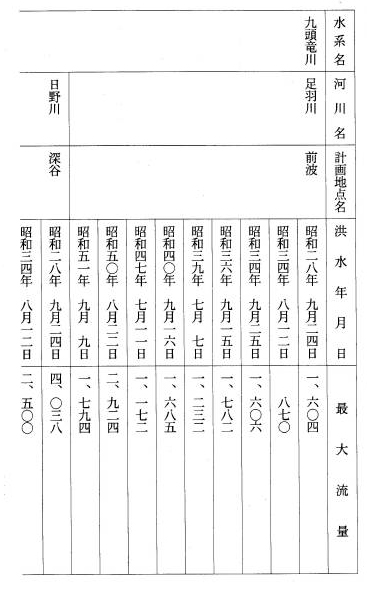 水系名 河川名 計画地点名 洪水年月日 最大流量
九頭竜川 足羽川 前波 昭和二八年 九月二四日 一、六〇四
昭和三四年 八月一二日 八七〇
昭和三四年 九月二五日 一、六〇六
昭和三六年 九月一五日 一、七八二
昭和三九年 七月 七日 一、二三二
昭和四〇年 九月一六日 一、六八五
昭和四七年 七月一一日 一、一七二
昭和五〇年 八月二二日 二、九二四
昭和五一年 九月 九日 一、七九四
日野川 深谷 昭和二八年 九月二四日 四、〇三八
昭和三四年 八月一二日 二、五〇〇